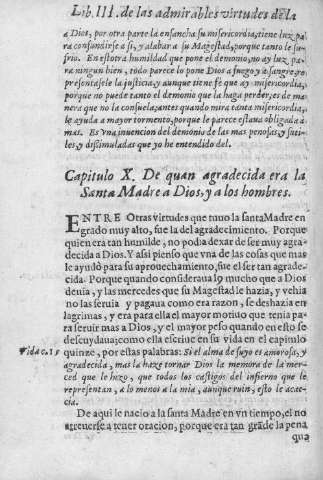 Lib. III. de las admirables virtudes de la
a Dios, por otra parte la ensancha su misericordia, tiene luz para
ra confundirse a si, y alabar a su Magestad, porque tanto le su-
frio. En estotra humildad que pone el demonio, no ay luz pa-
ra ningun bien, todo parece lo pone Dios a fuego y a sangre, re-
presentasele la justicia, y aunque tiene fe que ay misericordia,
porque no puede tanto el demonio que la haga perder, es de ma-
nera que no la consuela, antes quando mira tanta misericordia,
le ayuda a mayor tormento, porque le parece estaua obligada a
mas. Es vna inuencion del demonio de las mas penosas, y suti-
les, y disimuladas que yo he entendido del.
Capitulo X. De quan agradecida era la
Santa Madre a Dios, y a los hombres.
ENTRE Otras virtudes que tuuo la santa Madre en
grado muy alto, fue la del agradecimiento. Porque
quien era tan humilde, no podia dexar de ser muy agra-
decida a Dios. Y assi pienso que vna de las cosas que mas
le ayudò para su aprouechamiento, fue el ser tan agrade-
cida. Porque quando consideraua lo mucho que a Dios
deuia, y las mercedes que su Magestad le hazia, y vehia
no las seruia y pagaua como era razon, se deshazia en
lagrimas, y era para ella el mayor motiuo que tenia pa-
ra seruir mas a Dios, y el mayor peso quando en esto se
descuydaua; como ella escriue en su vida en el capitulo
Vida c. 15
quinze, por estas palabras: Si el alma de suyo es amorosa, y
agradecida, mas la haze tornar a Dios la memoria de la mer-
ced que le hizo, que todos los castigos del infierno que le
representan, a lo menos a la mia, aunque ruin, esto le acae-
cia.
De aqui le nacio a la santa Madre en vn tiempo, el no
atreuerse a tener oracion, porque era tan grãde la pena
que